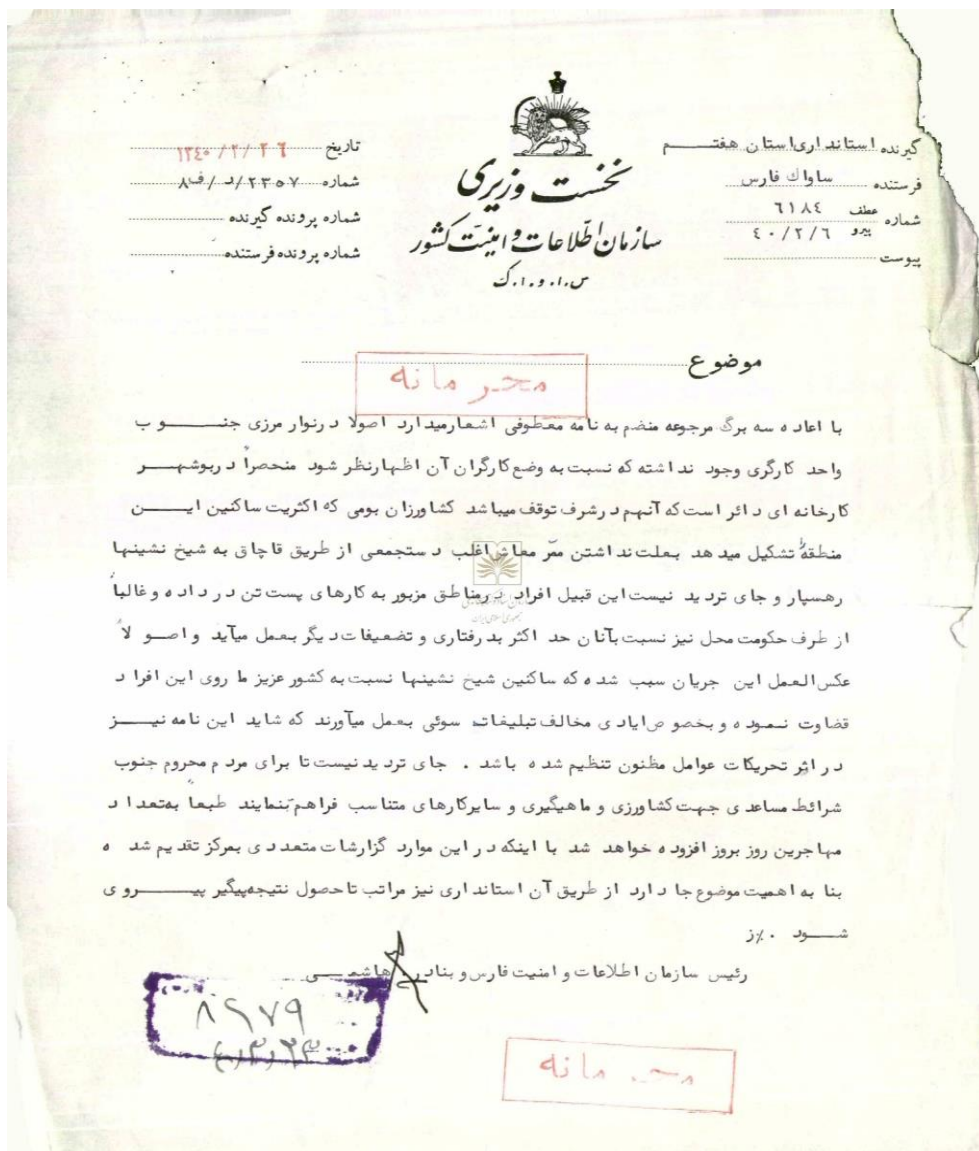 گیرنده استانداری استان هفتم
فرستنده ساواک فارس
شماره عطف ٦١٨٤
پیرو ٤٠/٢/٦
پیوست
نخست وزیری
سازمان اطلاعات و امنیت کشور
س.ا.و.ا.ک
تاریخ ۱۳٤۰/۲/۲٦
شماره ۲۳٥۷/د/ف۸
شماره پرونده گیرنده
شماره پرونده فرستنده
موضوع
محرمانه
با اعاده سه برگ مرجوعه منضم به نامه معطوفی اشعارمیدارد اصولا درنوار مرزی جنوب
واحد کارگری وجود نداشته که نسبت به وضع کارگران آن اظهارنظر شود منحصراً دربوشهر
کارخانه ای دائر است که آنهم درشرف توقف میباشد کشاورزان بومی که اکثریت ساکنین این
منطقه را تشکیل میدهد بعلت نداشتن ممر معاش اغلب دستجمعی از طریق قاچاق به شیخ نشینها
رهسپار و جای تردید نیست این قبیل افراد درمناطق مزبور به کارهای پست تن درداده و غالباً
از طرف حکومت محل نیز نسبت بآنان حد اکثر بدرفتاری و تضعیفات دیگر بعمل میآید و اصولاً
عکس العمل این جریان سبب شده که ساکنین شیخ نشینها نسبت به کشور عزیز ما روی این افراد
قضاوت نموده و بخصوص ایادی مخالف تبلیغات سوئی بعمل میآورند که شاید این نامه نیز
در اثر تحریکات عوامل مظنون تنظیم شده باشد . جای تردید نیست تا برای مردم محروم جنوب
شرائط مساعدی جهت کشاورزی و ماهیگیری و سایرکارهای متناسب فراهم ننمایند طبعاً بتعداد
مهاجرین روز بروز افزوده خواهد شد با اینکه در این موارد گزارشات متعددی بمرکز تقدیم شده
بنا به اهمیت موضوع جا دارد از طریق آن استانداری نیز مراتب تا حصول نتیجه پیگیر پیروی
شود .٪ز
رئیس سازمان اطلاعات و امنیت فارس و بنادر هاشمی
۸۹۷۹
محرمانه